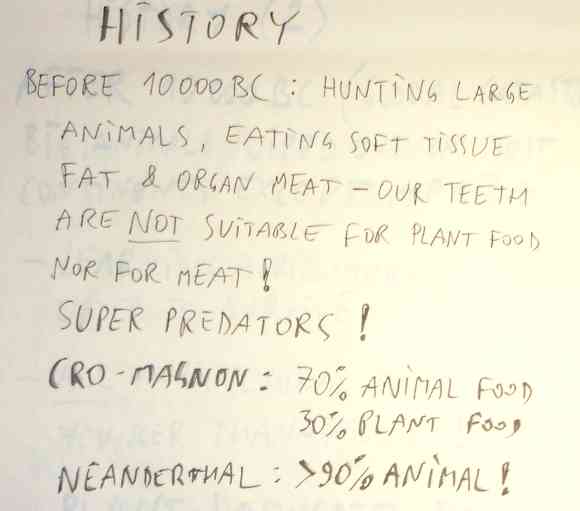 HISTORY
BEFORE 10000 BC : HUNTING LARGE
ANIMALS, EATING SOFT TISSUE
FAT & ORGAN MEAT – OUR TEETH
ARE NOT SUITABLE FOR PLANT FOOD
NOR FOR MEAT!
SUPER PREDATORS!
CRO-MAGNON : 70% ANIMAL FOOD
30% PLANT FOOD
NEANDERTHAL : >90% ANIMAL!